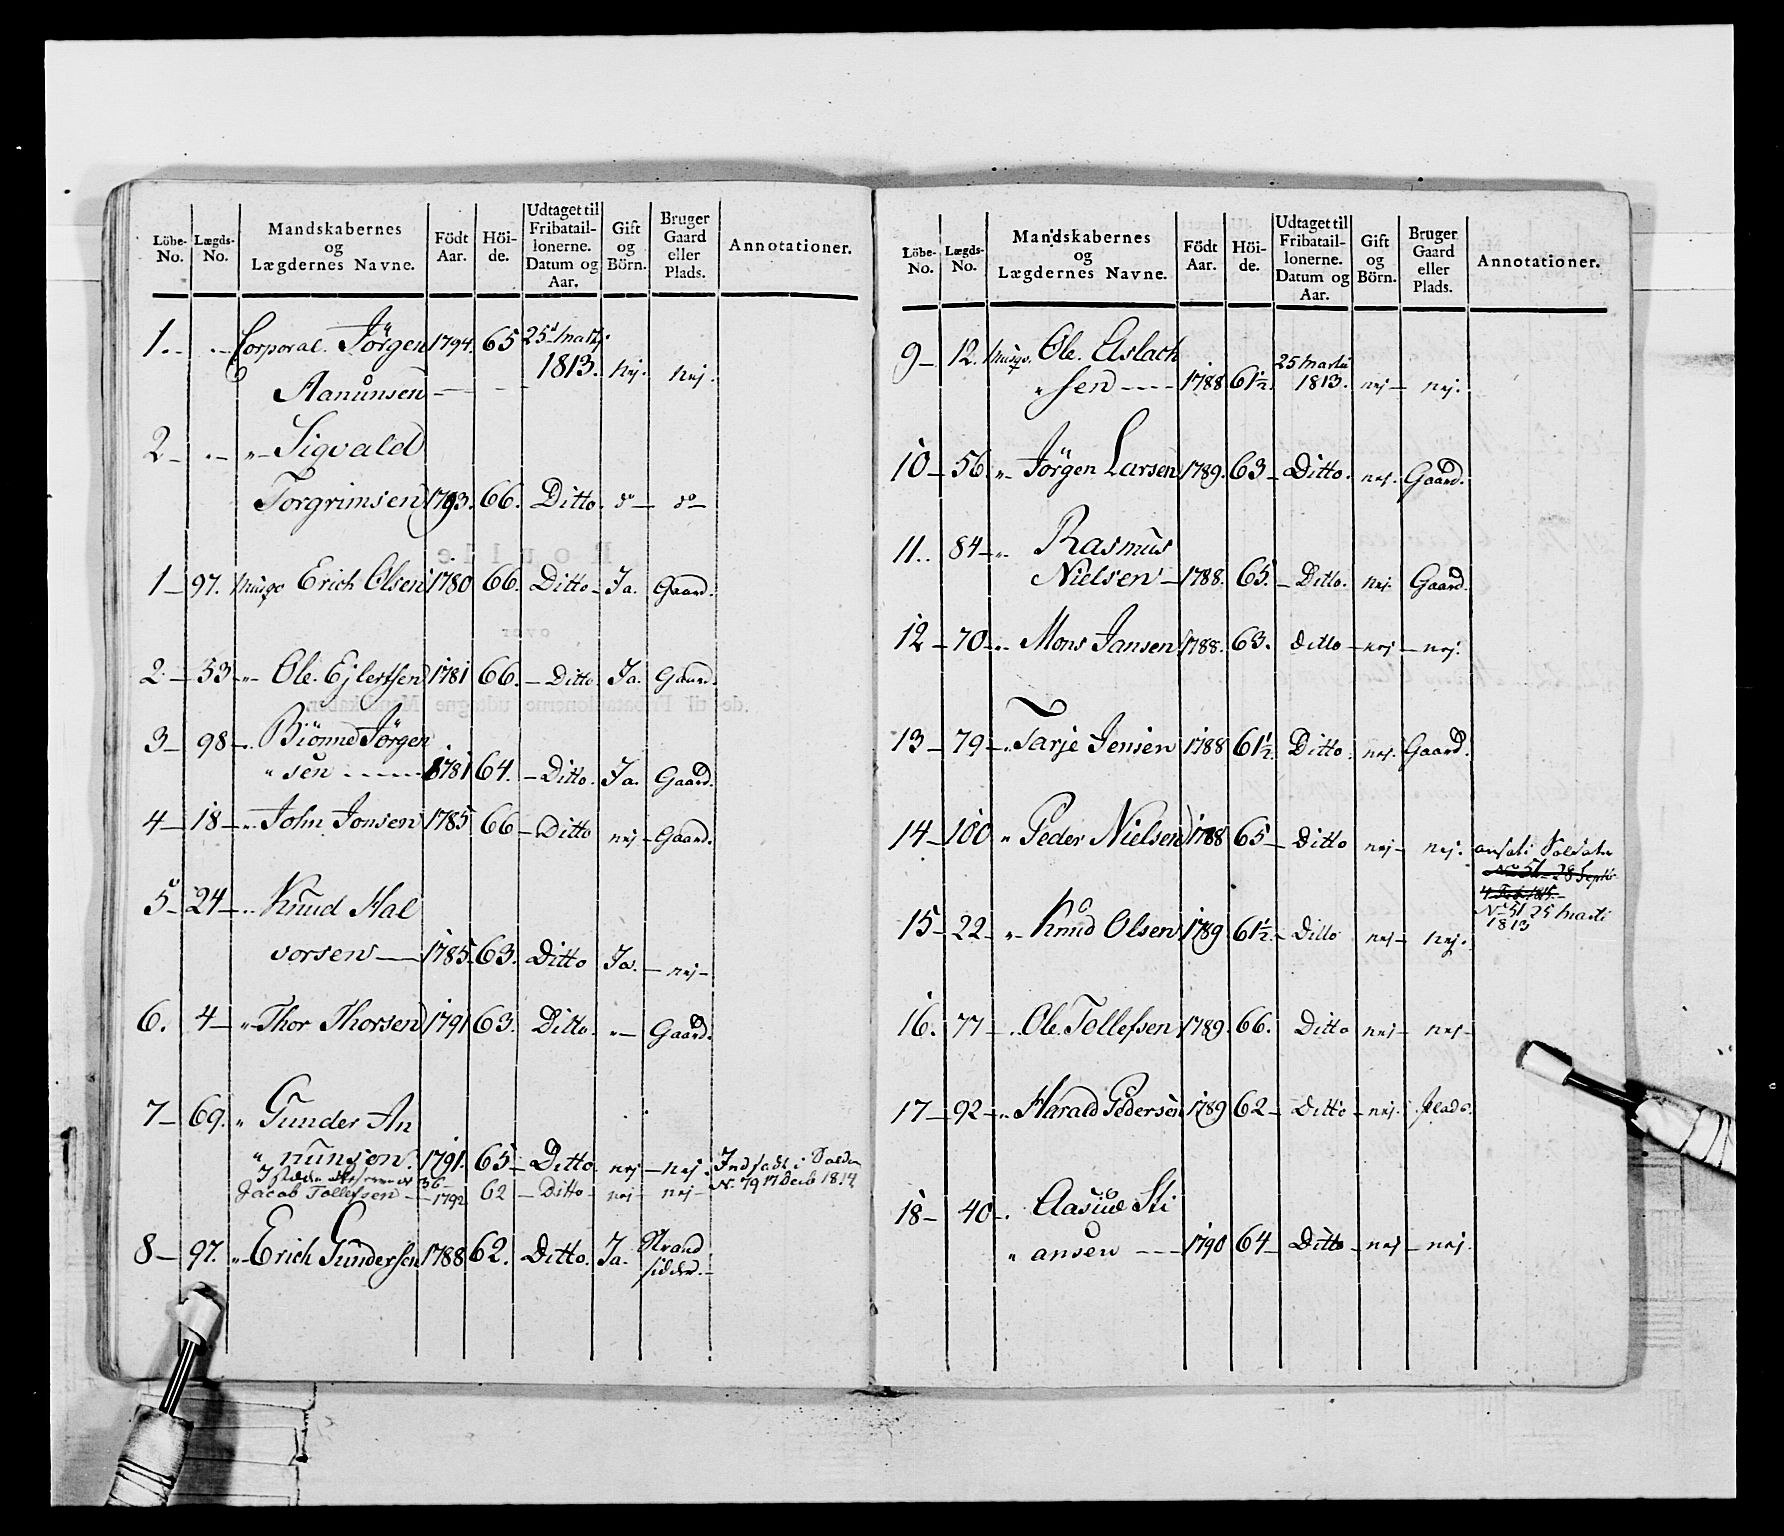 Löbe-No. Lægds-No. Mandskabernes og Lægdernes Navne. Födt Aar. Höi-de. Udtaget til Fribatail-lonerne. Datum og Aar. Gift og Börn. Bruger Gaard eller Plads. Annotationer.
1.. .- Corporal. Jörgen 1794. 65 25d Marti
Aanunsen — — - 1813. nej. nej.
2 - .- „ Sigvald
Torgrimsen 1793. 66. Ditto. do — do —
1 — 97. Musqr Erich Olsen 1780 66. Ditto - Ja. Gaard.
2 — 53 - „ Ole Ejlertsen 1781 66. - Ditto. Ja. Gaard.
3 — 98 - „ Biönne Jörgen
„ sen - - - - - 1781 64. - Ditto. Ja. Gaard.
4 — 18 - „ John Jonsen 1785 66 - Ditto nej - Gaard.
5 - 24 - „ Knud Hal
vorsen — 1785. 63. Ditto Ja. - nej -
6. 4 - „ Thor Thorsen 1791 63. Ditto. „ — Gaard.
7 - 69. „ Gunder An
„ nunsen. 1791. 65 - Ditto. nej - nej. Indsadt i
36 No 79 17 Decb 1814
Jacob Tollefsen - 1792 62 - Ditto - nej - nej -
8 - 97. „ Erich Gundersen 1788 62. Ditto. Ja. Strand
sidder. -
Löbe-No. Lægds-No. Mandskabernes og Lægdernes Navne. Födt Aar. Höi-de. Udtaget til Fribatail-lonerne. Datum og Aar. Gift og Börn. Bruger Gaard eller Plads. Annotationer.
9 - 12. Musqr. Ole Aslach 25 Martii
„ sen - - - - 1788 61½. 1813. nej - nej.
10 - 56 „ Jörgen Larsen 1789. 63 - Ditto. nej. Gaard.
11.. 84 - „ Rasmus
Nielsen - 1788. 65. - Ditto. nej. Gaard.
12 - 70 - „ Mons Jansen 1788. 63. ditto - nej - nej.
13 - 79 - „ Tarje Jensen 1788 61½. Ditto. nej. Gaard.
14 - 100 „ Peder Nielsen 1788 65 - Ditto nej - nej. ansat i
No 51 - 28 Septbr
No 51 25 Marti
1813
15 - 22 - „ Knud Olsen 1789 61½. - Ditto nej - nej.
16. 77 - „ Ole Tollefsen 1789. 66. Ditto nej - nej -
17 - 92 - „ Harald Pedersen 1789 62 - Ditto - nej. Plads.
18 - 40 - „ Aasiud Sti
„ ansen - - - 1790 64 - Ditto - nej - nej.